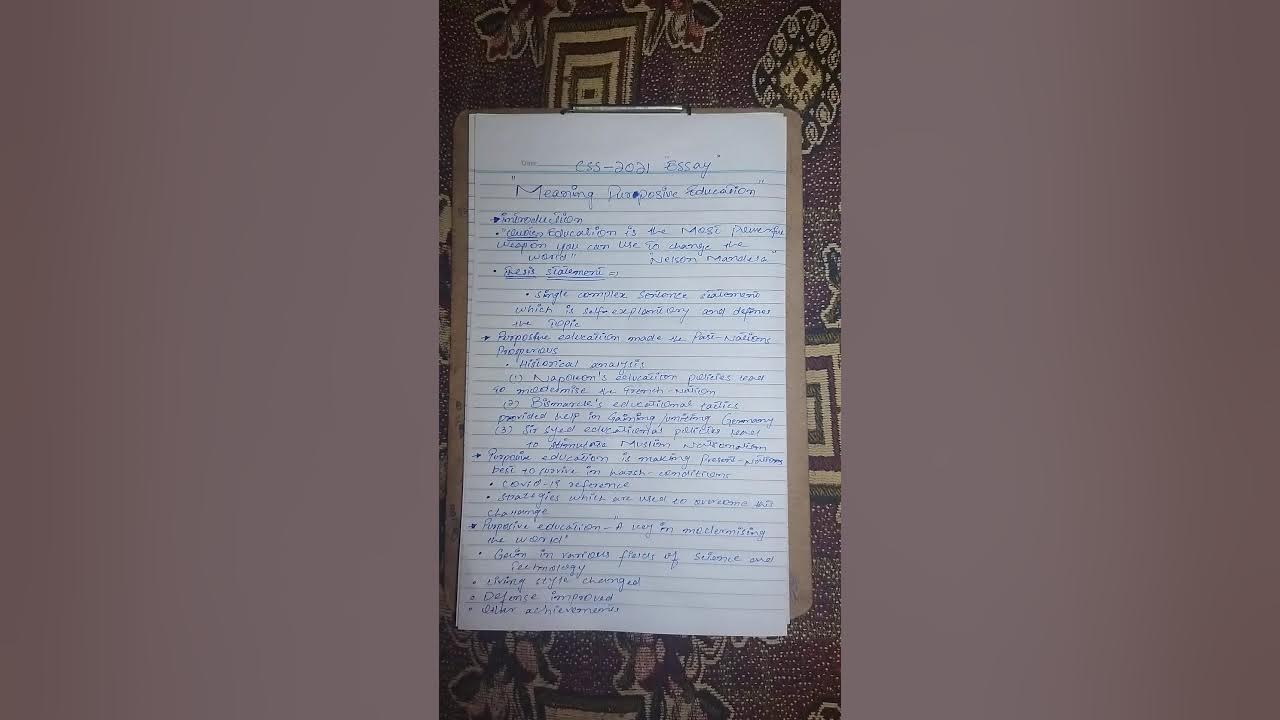 Date
CSS-2021 "Essay"
"Meaning Purposive Education"
introduction
• "(Quote) Education is the Most Powerful
weapon you can use to change the
world" Nelson Mandela"
• Thesis statement =>
• Single complex sentence statement
which is self-explantory and defines
the Topic
Purposive education made the Past-Nations
Prosperous
• Historical analysis
(1) Napoleon's education policies lead
to modernise the French-Nation
(2) Bismarck's educational tactics
provided help in Gaining/uniting Germany
(3) Sir Syed educational policies lead
to stimulate Muslim Nationalism
Purposive education is making Present-Nations
best to survive in harsh-conditions
• Covid-19 reference
• Strategies which are used to overcome this
challenge
Purposive education-"A key in modernising
the world"
• Gain in various fields of Science and
Technology
• Living style changed
• Defense improved
• Other achievements